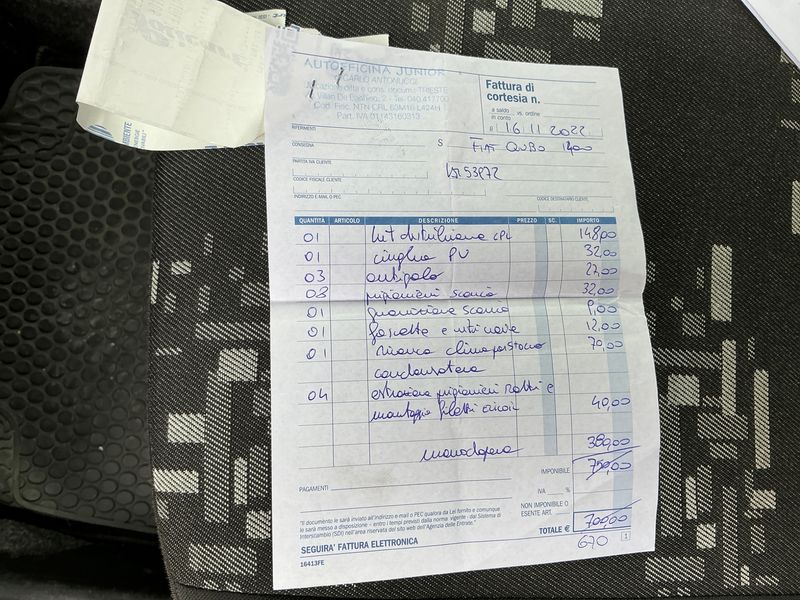 AUTOFFICINA JUNIOR
CARLO ANTONUCCI
TRIESTE
Part. IVA 01143160313
Fattura di
cortesia n.
a saldo vs. ordine
in conto
il 16 11 2022
RIFERIMENTI
CONSEGNA
S FIAT QUBO 1400
PARTITA IVA CLIENTE
CODICE FISCALE CLIENTE
INDIRIZZO E-MAIL O PEC
CODICE DESTINATARIO CLIENTE
QUANTITÀ ARTICOLO DESCRIZIONE PREZZO SC. IMPORTO
01 kit distribuzione cpl 148,00
01 cinghia PV 32,00
03 antigelo 27,00
08 prigionieri scarico 32,00
01 guarnizione scarico 9,00
01 fascette e viti nove 12,00
01 ricarica clima per stacco 70,00
condensatore
04 estrazione prigionieri rotti e
montaggio filetti elicoil 40,00
manodopera 380,00
IMPONIBILE 750,00
PAGAMENTI
IVA %
NON IMPONIBILE O
ESENTE ART.
"Il documento le sarà inviato all'indirizzo e-mail o PEC qualora da Lei fornito e comunque
le sarà messo a disposizione - entro i tempi previsti dalla norma vigente - dal Sistema di
Interscambio (SDI) nell'area riservata del sito web dell'Agenzia delle Entrate."
TOTALE € 700,00
SEGUIRA' FATTURA ELETTRONICA
670
1
16413FE